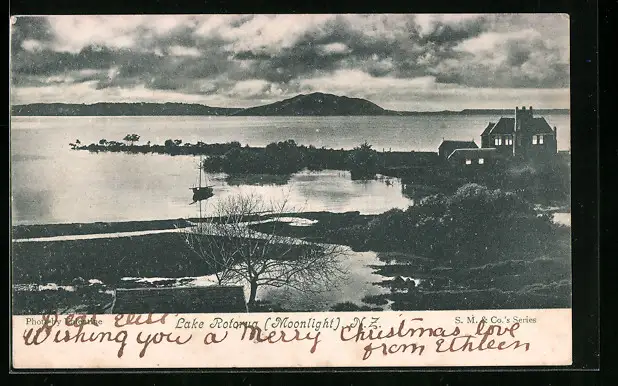 Dear Elsie
Photo by Lake Rotorua (Moonlight), N.Z. S. M. & Co.'s Series
Wishing you a Merry Christmas love
from Ethleen